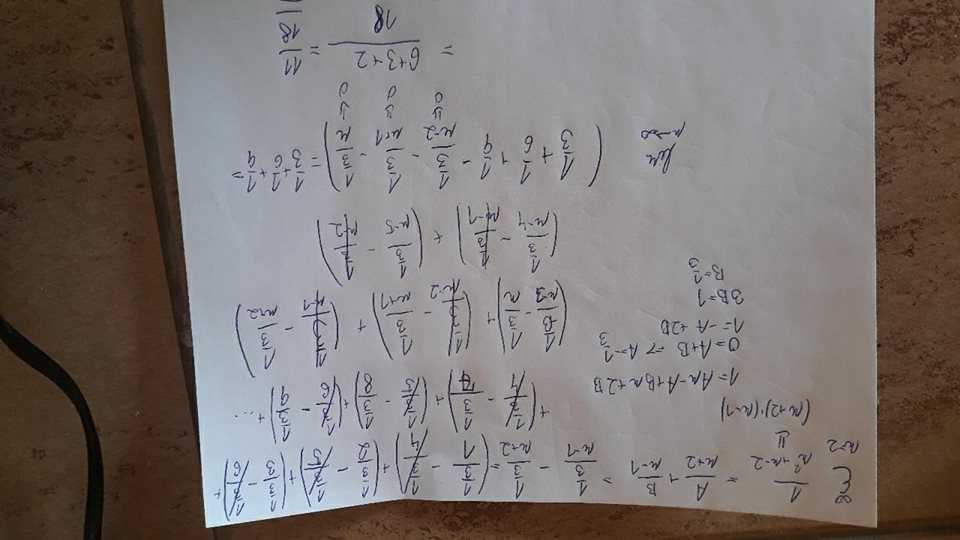 ∞ Σ n=2 1/(n²+n-2) = A/(n+2) + B/(n-1) = (1/3)/(n-1) - (1/3)/(n+2) = ((1/3)/1 - (1/3)/4) + ((1/3)/2 - (1/3)/5) + ((1/3)/3 - (1/3)/6) +
(n+2)·(n-1)
+ ((1/3)/4 - (1/3)/7) + ((1/3)/5 - (1/3)/8) + ((1/3)/6 - (1/3)/9) + ...
1 = An - A + Bn + 2B
0 = A + B => A = -1/3
1 = -A + 2B
3B = 1
B = 1/3
((1/3)/(n-3) - (1/3)/n) + ((1/3)/(n-2) - (1/3)/(n+1)) + ((1/3)/(n-1) - (1/3)/(n+2))
((1/3)/(n-4) - (1/3)/(n-1)) + ((1/3)/(n-5) - (1/3)/(n-2))
lim n→∞ (1/3 + 1/6 + 1/9 - (1/3)/(n+2) - (1/3)/(n+1) - (1/3)/n) = 1/3 + 1/6 + 1/9 =
0 0 0
= (6+3+2)/18 = 11/18